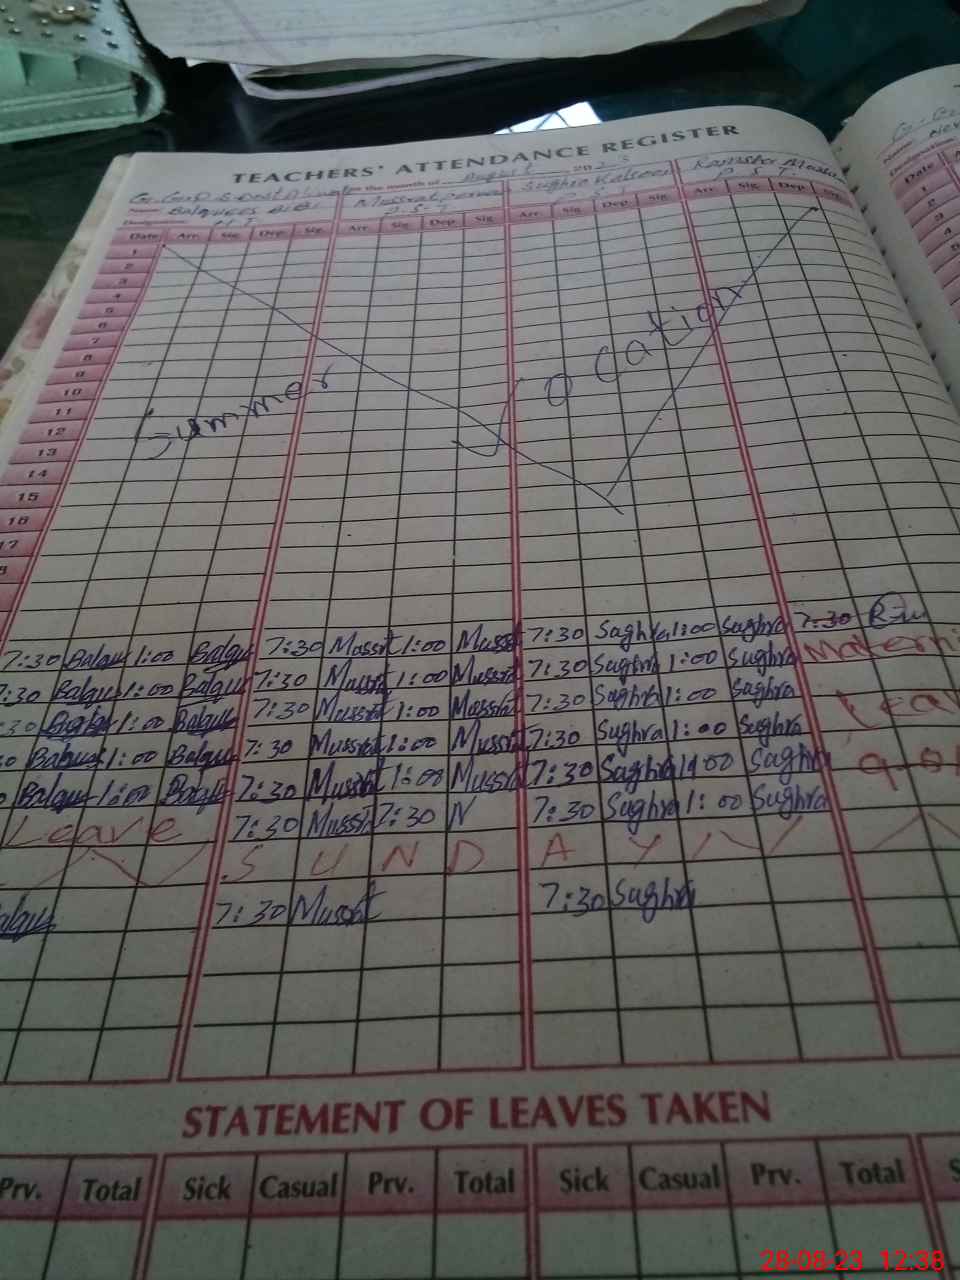 TEACHERS' ATTENDANCE REGISTER
for the month of August 2023
Name Balquees BiBi Mussrat Sughra Kalsoom
P. S. T.
Date Arr. Sig. Dep. Sig. Arr. Sig. Dep. Sig. Arr. Sig. Dep. Sig. Arr. Sig. Dep. Sig.
1
2
3
4
5
6
7
8
9
10
11
12
13
14
15
16
17
Summer Vocation
7:30 Balqus 1:00 Balqus 7:30 Mussrt 1:00 Mussrt 7:30 Saghra 1:00 Saghra 7:30
7:30 Balqus 1:00 Balqus 7:30 Mussrt 1:00 Mussrt 7:30 Saghra 1:00 Saghra Materni
:30 Balqus 1:00 Balqus 7:30 Mussrt 1:00 Mussrt 7:30 Saghra 1:00 Saghra Leav
Balqus 1:00 Balqus 7:30 Mussrt 1:00 Mussrt 7:30 Saghra 1:00 Saghra
Balqus 1:00 Balqus 7:30 Mussrt 1:00 Mussrt 7:30 Saghra 1:00 Saghra
Leave 7:30 Mussrt 7:30 N 7:30 Saghra 1:00 Saghra
SUNDAY
7:30 Mussrt 7:30 Saghra
STATEMENT OF LEAVES TAKEN
Prv. Total Sick Casual Prv. Total Sick Casual Prv. Total S
28-08-23 12:38